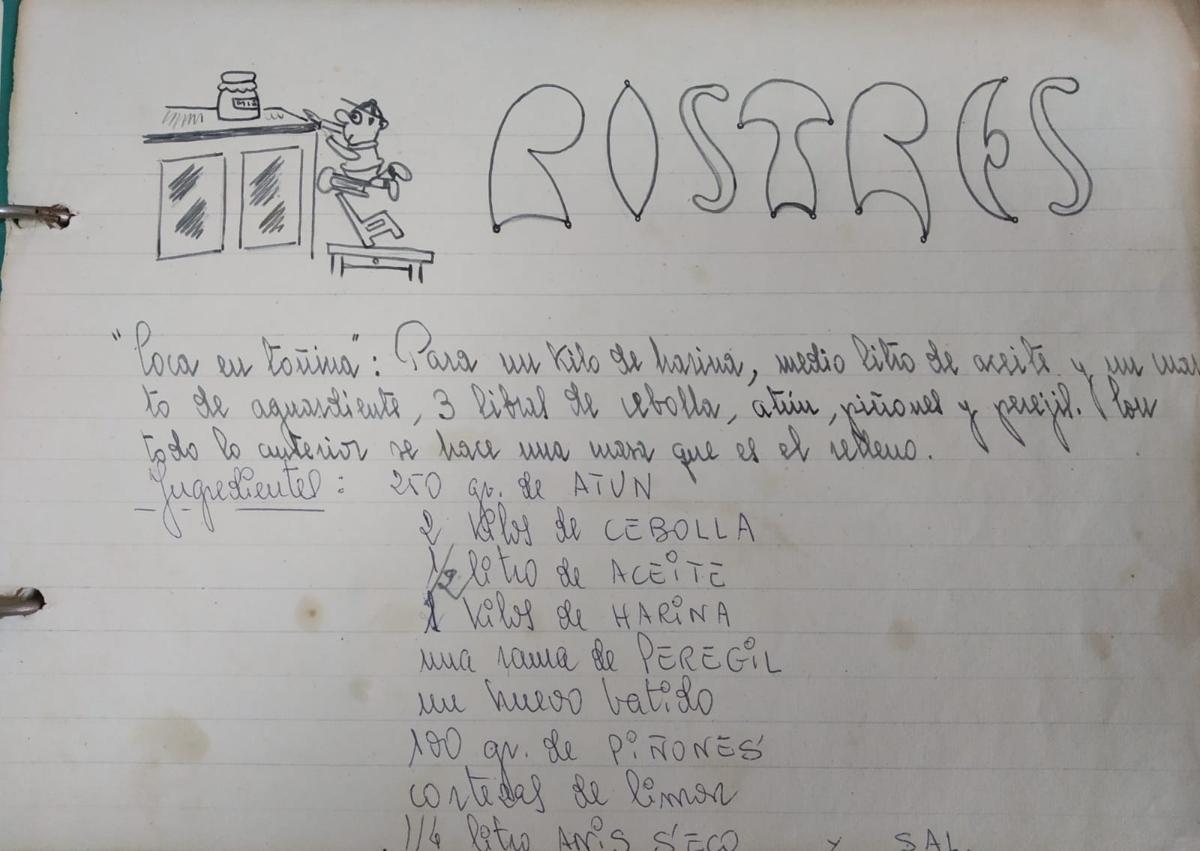 MIEL
POSTRES
"Coca en toñina": Para un Kilo de harina, medio litro de aceite y un mar
to de aguardiente, 3 libras de cebolla, atún, piñones y perejil. Con
todo lo anterior se hace una masa que es el relleno.
Ingredientes: 250 gr. de ATUN
2 Kilos de CEBOLLA
1/2 litro de ACEiTE
1 Kilos de HARiNA
una rama de PEREGiL
un huevo batido
100 gr. de PiÑONES
cortezas de limon
1/4 litro ANiS SECO y SAL.